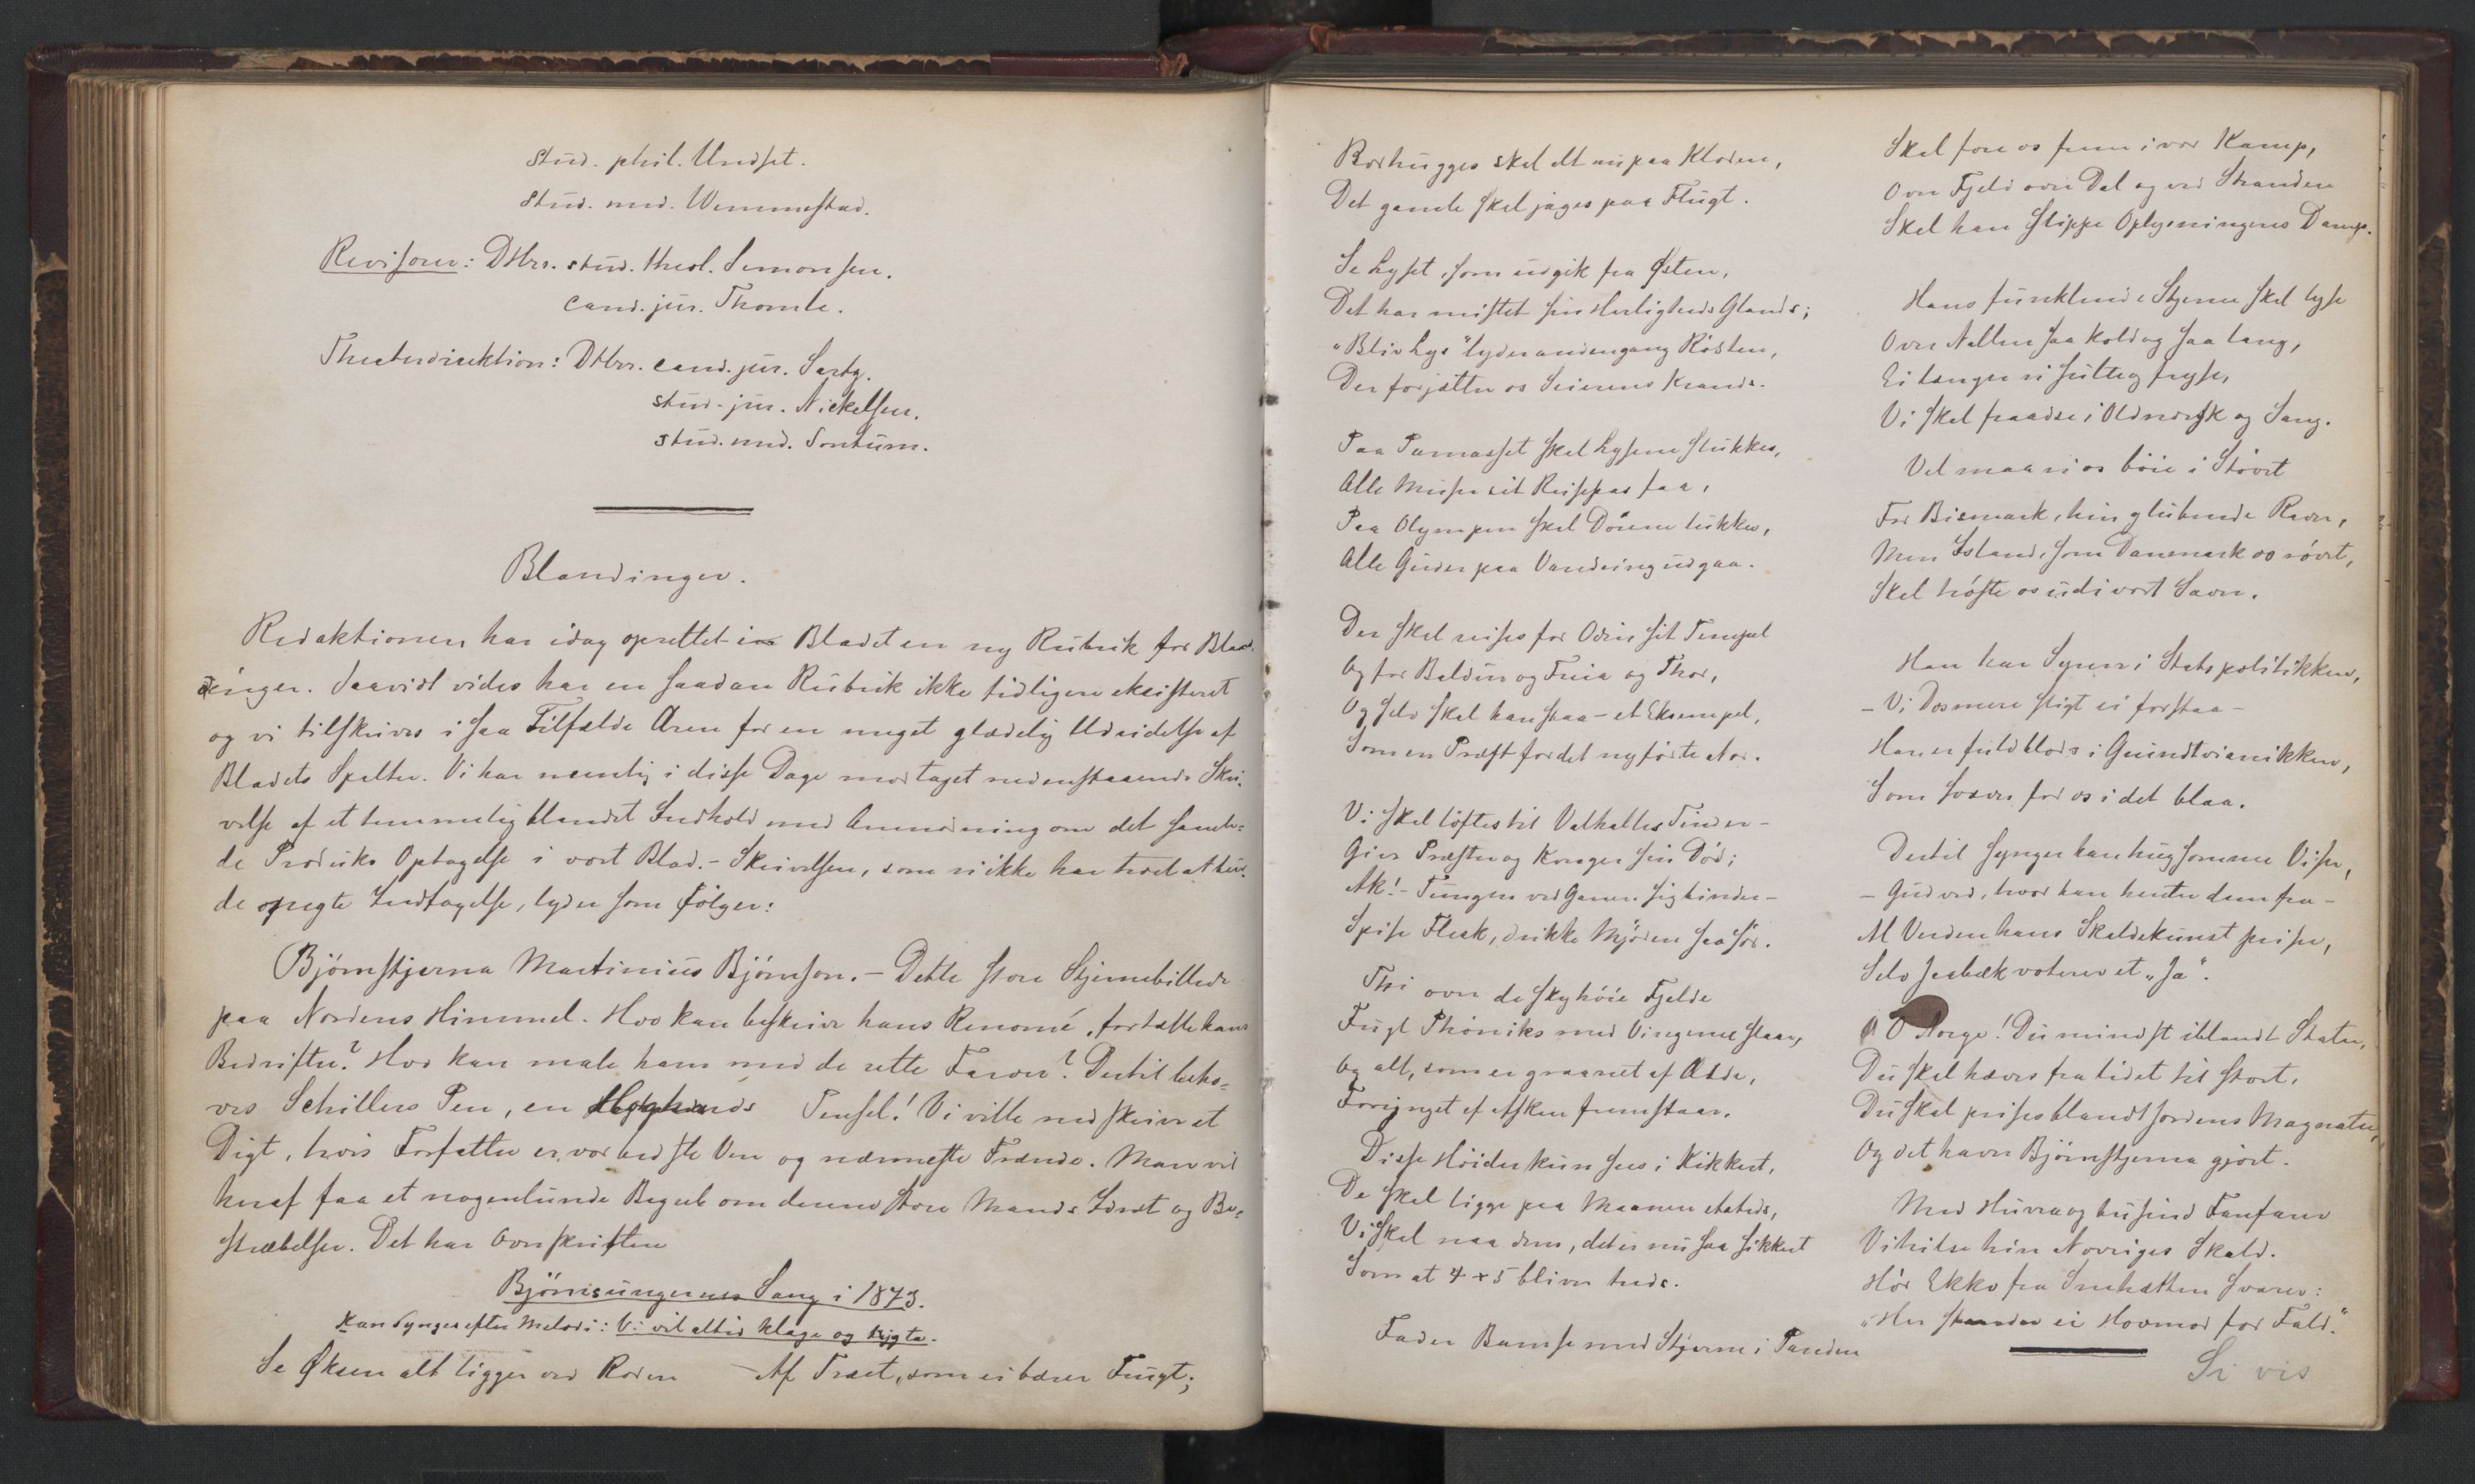 stud. phil. Undset.
stud. med. Wemmestad.
Revisorer: DHrr. stud. theol. Simonsen.
cand. jur. Thomle.
Theaterdirektion: DHrr. cand. jur. Sartz.
stud. jur. Nickelsen.
stud. med. Sontum.
Blandinger.
Redaktionen har idag oprettet i Bladet en ny Rubrik for Bland-
dinger. Saavidt vides har en saadan Rubrik ikke tidligere eksisteret
og vi tilskrives i saa Tilfælde Æren for en meget glædelig Udvidelse af
Bladets Spalter. Vi har nemlig i disse Dage modtaget nedenstaaende Skri-
velse af et temmelig blandet Indhold med Anmodning om det samle-
de Produkts Optagelse i vort Blad. - Skrivelsen, som vi ikke har troet at bur-
de negte Indtagelse, lyder som følger:
Bjørnstjerna Martinius Bjørnson. - Dette store Stjernebillede
paa Nordens Himmel. Hvo kan beskrive hans Renomé, fortælle hans
Bedrifter? Hvo kan male ham med de rette Farver? Dertil behø-
ves Schillers Pen, en Pensel! Vi ville nedskrive et
Digt, hvis Forfatter er vor bedste Ven og nærmeste Frænde. Man vil
heraf faa et nogenlunde Begreb om denne store Mands Idræt og Be-
stræbelser. Det har Overskriften
Bjørnsungernes Sang i 1873.
Kan synges efter Melodi: Vi vil altid klage og
Se Øksen alt ligger ved Roden - Af Træet, som ei bærer Frugt;
Borthugges skal alt nu paa Kloden,
Det gamle skal jages paa Flugt.
Se Lyset, som udgik fra Østen,
Det har mistet sin Herligheds Glands;
"Bliv Lys" lyder andengang Røsten,
Der forjætter os Seierens Krands.
Paa Parnasset skal Lysene slukkes,
Alle Muser sit Reisepas faa,
Paa Olympen skal Dørene lukkes,
Alle Guder paa Vandring udgaa.
Der skal reises for Odin sit Tempel
Og for Baldur og Freia og Thor,
Og selv skal han staa - et Eksempel,
Som en Præst for det nyfødte Nor.
Vi skal løftes til Valhallas Tinder -
Giv Præster og Konger sin Død;
Ak! - Tungen ved Ganen sig binder -
Spise Flesk, drikke Mjøden saa sød.
Thi over de skyhøie Fjelde
Fugl Phøniks med Vingerne slaar,
Og alt, som er graanet af Ælde,
Forynget af Asken fremstaar.
Disse Høider kun sees i Kikkert,
De skal ligge paa Maanen etsteds,
Vi skal naa dem, det er nu saa sikkert
Som at 4 + 5 bliver treds.
Fader Bamse med Stjerne i Panden
Skal føre os frem i vor Kamp,
Over Fjeld over Dal og ved Stranden
Skal han slippe Oplysningens Damp.
Hans funklende Stjerne skal lyse
Over Natten saa kold og saa lang,
Ei længer vi sulte og fryse,
Vi skal fraadse i Oldnorsk og Sang.
Vel maa vi os bøie i Støvet
For Bismark, hin glubende Ravn,
Men Island, som Danemark os røvet,
Skal trøste os udi vort Savn.
Han har Synen i Statspolitikken,
- Vi Dosmere sligt ei forstaa -
Han er fuldblods i Gruindtvianikken,
Som svæver for os i det blaa.
Dertil synger han hugsomme Viser,
- Gud ved, hvor han henter dem fra -
Al Verden hans Skaldekunst priser,
Selv Jaabæk voterer et "Ja".
O Norge! Du mindst iblandt Stater,
Du skal hæves fra lidet til stort,
Du skal prises blandt Jordens Magnater,
Og det haver Bjørnstjerna gjort.
Med Hurra og tusind Fanfarer
Vi hilse hin Norriges Skald.
Hør Ekko fra Snehætten svarer:
"Her stander ei Hovmod for Fald."
Si vis